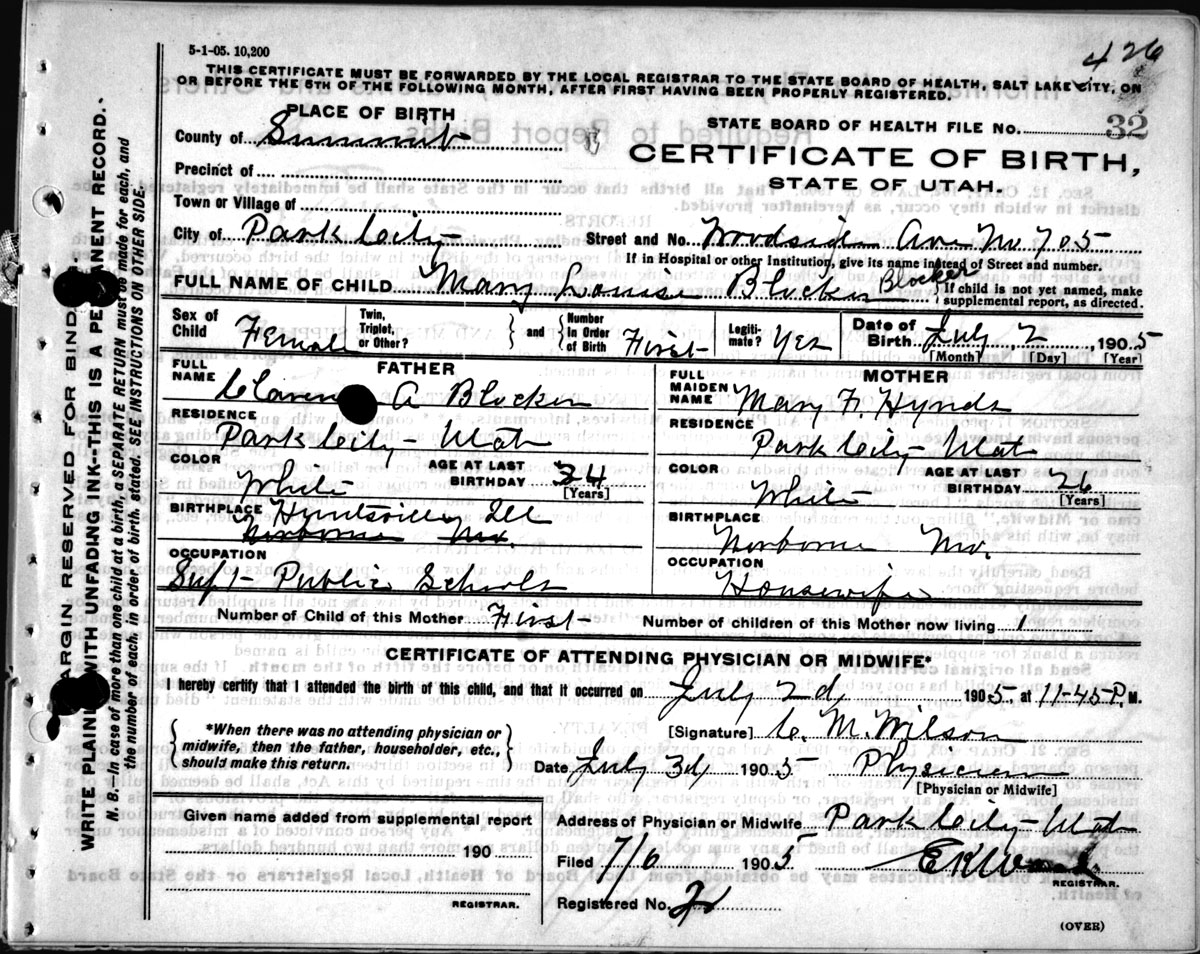 5-1-05. 10,200
426
THIS CERTIFICATE MUST BE FORWARDED BY THE LOCAL REGISTRAR TO THE STATE BOARD OF HEALTH, SALT LAKE CITY, ON
OR BEFORE THE 5TH OF THE FOLLOWING MONTH, AFTER FIRST HAVING BEEN PROPERLY REGISTERED.
PLACE OF BIRTH
County of Summit
Precinct of
Town or Village of
STATE BOARD OF HEALTH FILE NO. 32
CERTIFICATE OF BIRTH,
STATE OF UTAH.
City of Park City Street and No. Woodside Av. No 705
If in Hospital or other Institution, give its name instead of Street and number.
FULL NAME OF CHILD Mary Louise Blocker Blocker
If child is not yet named, make
supplemental report, as directed.
Sex of Child Female
Twin, Triplet, or Other?
and
Number in Order of Birth First
Legiti-mate? Yes
Date of Birth July 2, 1905
[Month] [Day] [Year]
FATHER
FULL NAME Claren A Blocker
RESIDENCE
Park City - Utah
COLOR White AGE AT LAST BIRTHDAY 34
[Years]
BIRTHPLACE Hyntsville Ill
Norborne Mo
OCCUPATION
Supt - Public Schols
MOTHER
FULL MAIDEN NAME Mary F. Hynds
RESIDENCE
Park City - Utah
COLOR White AGE AT LAST BIRTHDAY 26
[Years]
BIRTHPLACE
Norborne Mo.
OCCUPATION
Housewife
Number of Child of this Mother First Number of children of this Mother now living 1
CERTIFICATE OF ATTENDING PHYSICIAN OR MIDWIFE*
I hereby certify that I attended the birth of this child, and that it occurred on July 2d, 1905, at 11-45 P. M.
*When there was no attending physician or
midwife, then the father, householder, etc.,
should make this return.
[Signature] C. M. Wilson
Date July 3d 1905 Physician
[Physician or Midwife]
Given name added from supplemental report
190
REGISTRAR.
Address of Physician or Midwife Park City - Utah
Filed 7/6 1905
REGISTRAR.
Registered No. 
(OVER)
MARGIN RESERVED FOR BINDING
WRITE PLAINLY WITH UNFADING INK--THIS IS A PERMANENT RECORD.
N. B.--In case of more than one child at a birth, a SEPARATE RETURN must be made for each, and
the number of each, in order of birth, stated. SEE INSTRUCTIONS ON OTHER SIDE.